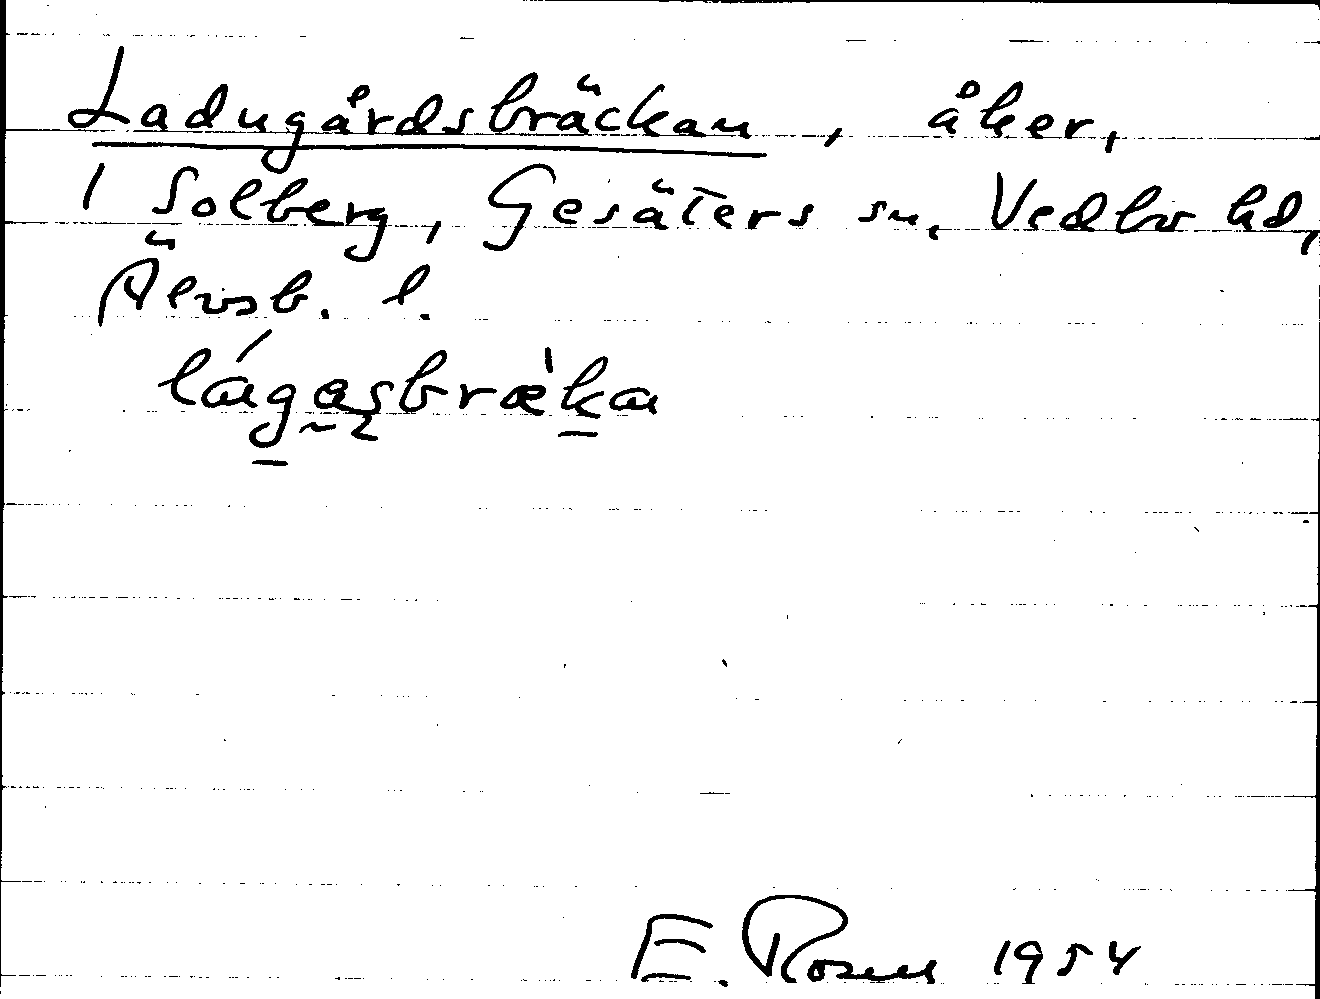 Ladugårdsbräckan, åker,
1 Solberg, Gesäters sn, Vedbo hd,
Älvsb. l.
lágasbræ̀ka
E. Rosell 1954